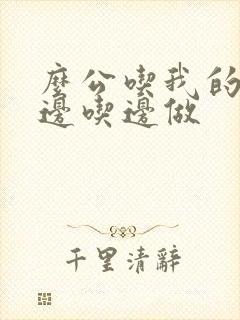 麼公喫我的
邊喫邊做
千里清辭